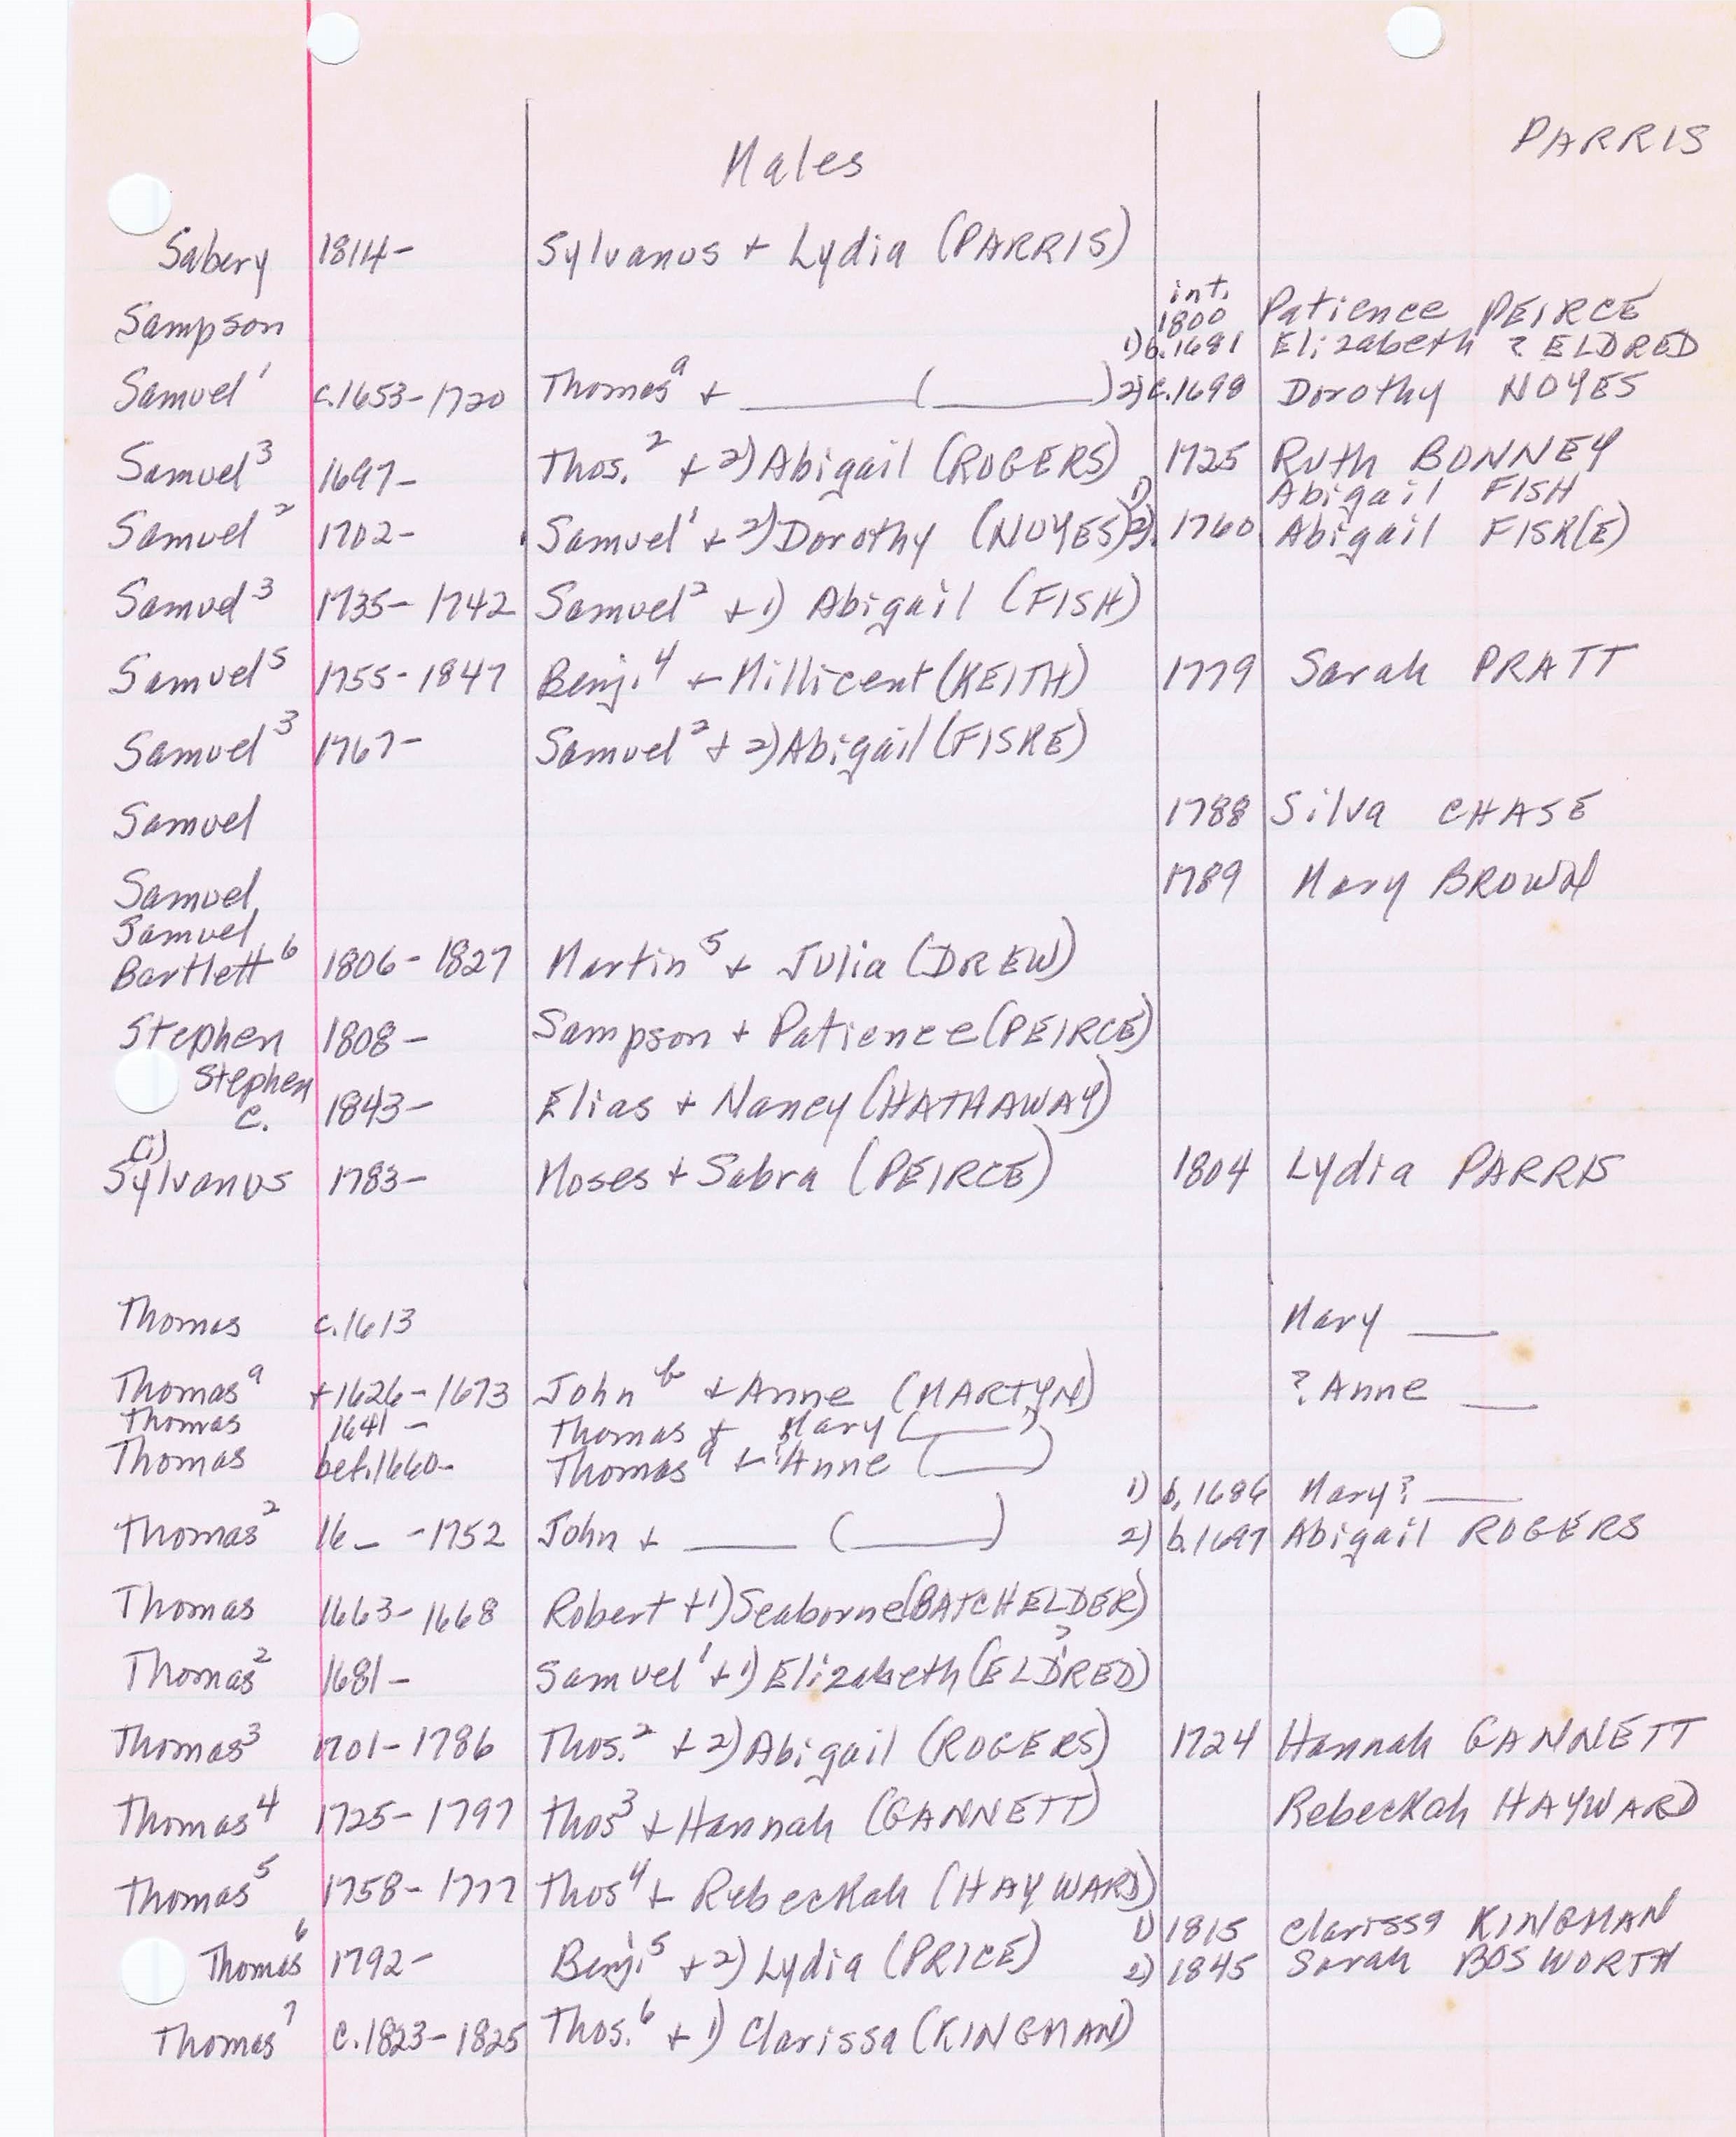 PARRIS
Males
Sabery 1814- Sylvanus + Lydia (PARRIS)
Sampson int. 1800 Patience PEIRCE
1) b.1681 Elizabeth ? ELDRED
Samuel¹ c.1653-1720 Thomasᵃ + ____ (____) 2) c.1698 Dorothy NOYES
Samuel³ 1697- Thos.² + 2) Abigail (ROGERS) 1725 Ruth BONNEY
1) Abigail FISH
Samuel² 1702- Samuel¹ + 2) Dorothy (NOYES) 2) 1760 Abigail FISK(E)
Samuel³ 1735-1742 Samuel² + 1) Abigail (FISH)
Samuel⁵ 1755-1847 Benj.⁴ + Millicent (KEITH) 1779 Sarah PRATT
Samuel³ 1767- Samuel² + 2) Abigail (FISKE)
Samuel 1788 Silva CHASE
Samuel 1789 Mary BROWN
Samuel
Bartlett⁶ 1806-1827 Martin⁵ + Julia (DREW)
Stephen 1808- Sampson + Patience (PEIRCE)
Stephen
C. 1843- Elias + Nancy (HATHAWAY)
(i)
Sylvanus 1783- Moses + Sabra (PEIRCE) 1804 Lydia PARRIS
Thomas c.1613 Mary ____
Thomasᵃ +1626-1673 Johnᵇ + Anne (MARTYN) ? Anne ____
Thomas 1641- Thomas + Mary (____)
Thomas bef.1660- Thomasᵃ + ? Anne (____)
1) b.1686 Mary? ____
Thomas² 16_ -1752 John + ____ (____) 2) b.1697 Abigail ROGERS
Thomas 1663-1668 Robert + 1) Seaborne (BATCHELDER)
Thomas² 1681- Samuel¹ + 1) Elizabeth (ELDRED) ?
Thomas³ 1701-1786 Thos.² + 2) Abigail (ROGERS) 1724 Hannah GANNETT
Thomas⁴ 1725-1797 Thos³ + Hannah (GANNETT) Rebeckah HAYWARD
Thomas⁵ 1758-1777 Thos⁴ + Rebeckah (HAYWARD)
1) 1815 Clarissa KINGMAN
Thomas⁶ 1792- Benj.⁵ + 2) Lydia (PRICE) 2) 1845 Sarah BOSWORTH
Thomas⁷ c.1823-1825 Thos.⁶ + 1) Clarissa (KINGMAN)